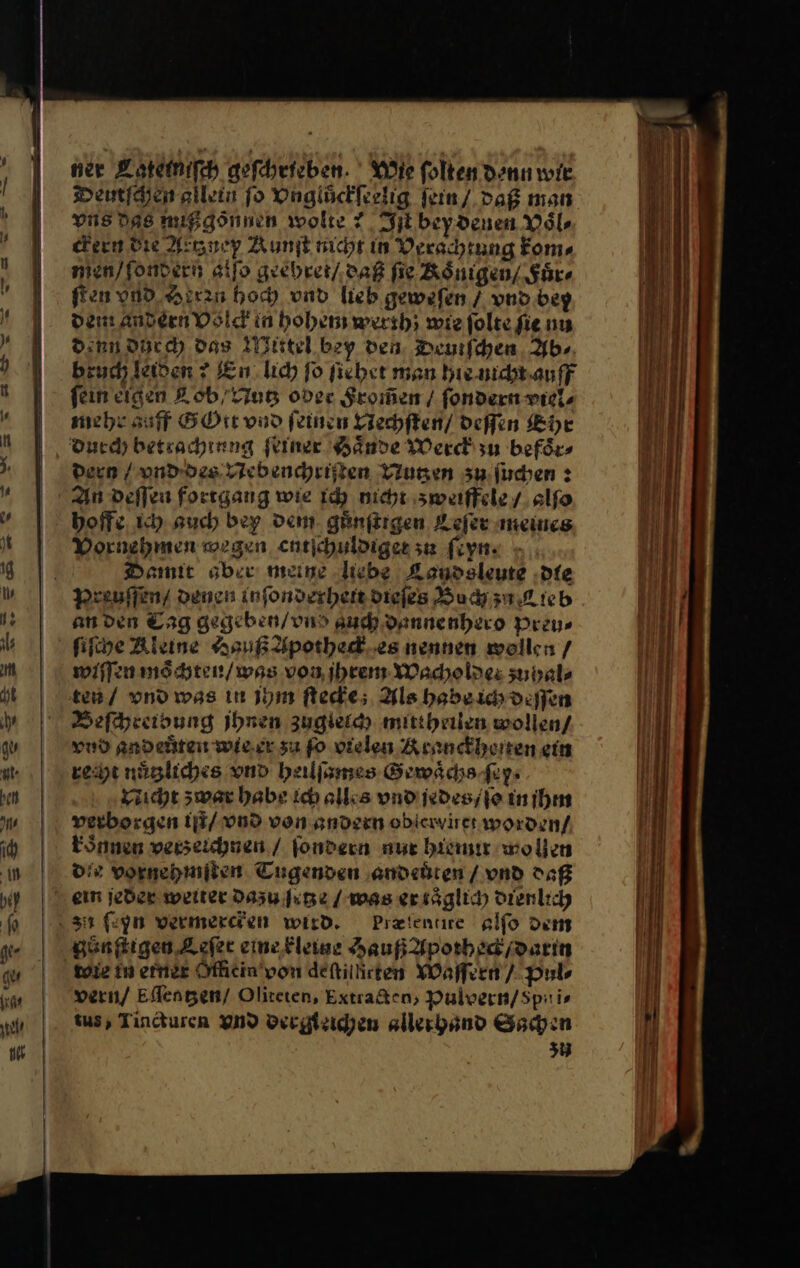 ner Lateiniſch geſchrieben. Wie ſolten denn wir
Deutſchen allein ſo vnglückſeelig ſein / daß man
vns das mißgönnen wolte ? Iſt bey denen Völ⸗
ckern die Artzney Kunſt nicht in Verachtung kom⸗
men/ſondern alſo geehret/ daß ſie Königen/ Für⸗
ſten vnd Herzn hoch vnd lieb geweſen / vnd bey
dem andern Volck in hohem werth; wie ſolte ſie nu
denn durch das Mittel bey den Deutſchen Ab⸗
bruch leiden ? En lich ſo ſiehet man hie nicht auff
ſein eigen Lob/ Nutz oder From̃en / ſondern viel⸗
mehr auff GOtt vnd ſeinen Nechſten/ deſſen Ehr
durch betrachtung ſeiner Hände Werck zu beför⸗
dern / vnd des Nebenchriſten Nutzen zu ſuchen :
An deſſen fortgang wie ich nicht zweiffele / alſo
hoffe ich auch bey dem günſtigen Leſer meines
Vornehmen wegen entſchuldiget zu ſeyn.
Damit aber meine liebe Landsleute die
Preuſſen/ denen inſonderheit dieſes Buch zu Lieb
an den Tag gegeben/vnd auch dannenhero Preu⸗
ſiſche Kleine Hauß Apotheck es nennen wollen /
wiſſen möchten/was von jhrem Wacholder zuhal⸗
ten / vnd was in jhm ſtecke; Als habe ich deſſen
Beſchreibung jhnen zugleich mittheilen wollen/
vnd andeüten wie er zu ſo vielen Kranckheiten ein
recht nützliches vnd heilſames Gewächs ſey.
Nicht zwar habe ich alles vnd jedes/ ſo in jhm
verborgen iſt/ vnd von andern obſerviret worden/
können verzeichnen / ſondern nur hiemit wollen
die vornehmſten Tugenden andeüten / vnd daß
ein jeder weiter dazu ſetze / was er täglich dienlich
zu ſeyn vermercken wird. Præſentire alſo dem
günſtigen Leſer eine kleine Hauß Apotheck/darin
wie in einer Officin von deſtillirten Waſſern / Pul⸗
vern/ Eſſentzen/ Oliteten, Extracten, Pulvern/Spiri⸗
tus, Tincturen vnd dergleichen allerhand Sachen
zu